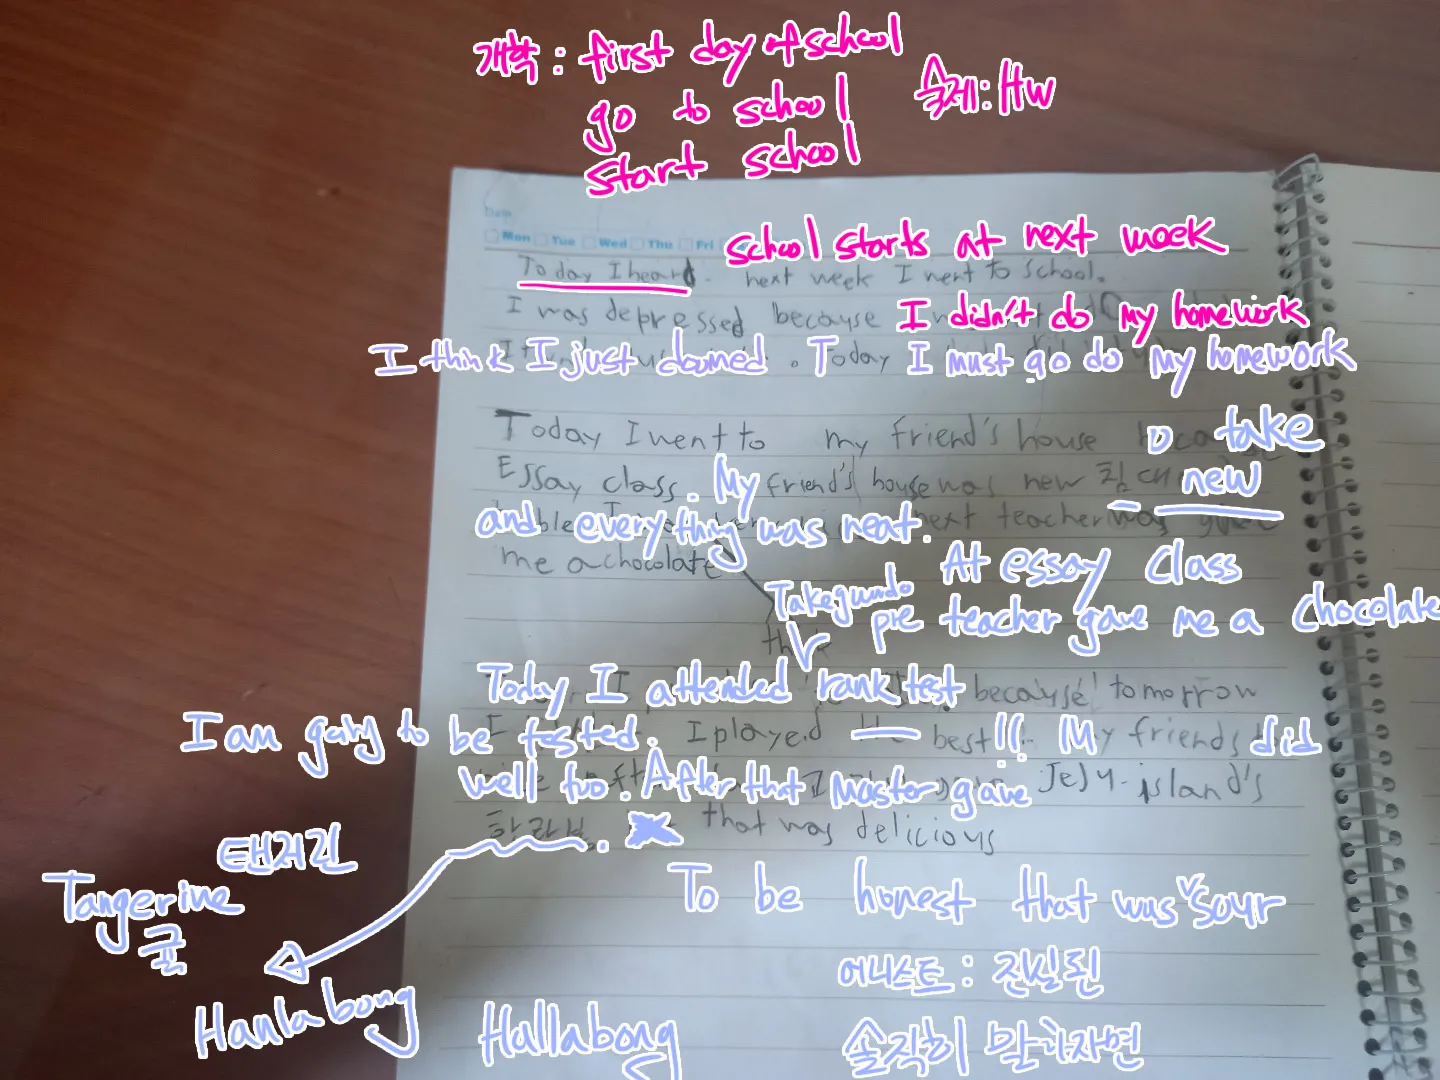 개학: first day of school
go to school
숙제: HW
start school
Date
Mon Tue Wed Thu Fri
school starts at next week
Today I heard. next week I went to school.
I was depressed because I didn't do my homework
I think I just doomed. Today I must go do My homework
Today I went to my friend's house to take
Essay class. My friend's house was new 침대 new
and everything was neat. next teacher was
me a chocolate
At essay class
Takegwndo pre teacher gave me a chocolate
Today I attended rank test because tomorrow
I am going to be tested. I played best!! My friends did
well too. After that Master gave Jeju-island's
한라봉 that was delicious
탠저린
Tangerine
귤
To be honest that was sour
어니스트:진실된
Hanlabong Hallabong 솔직히 말하자면